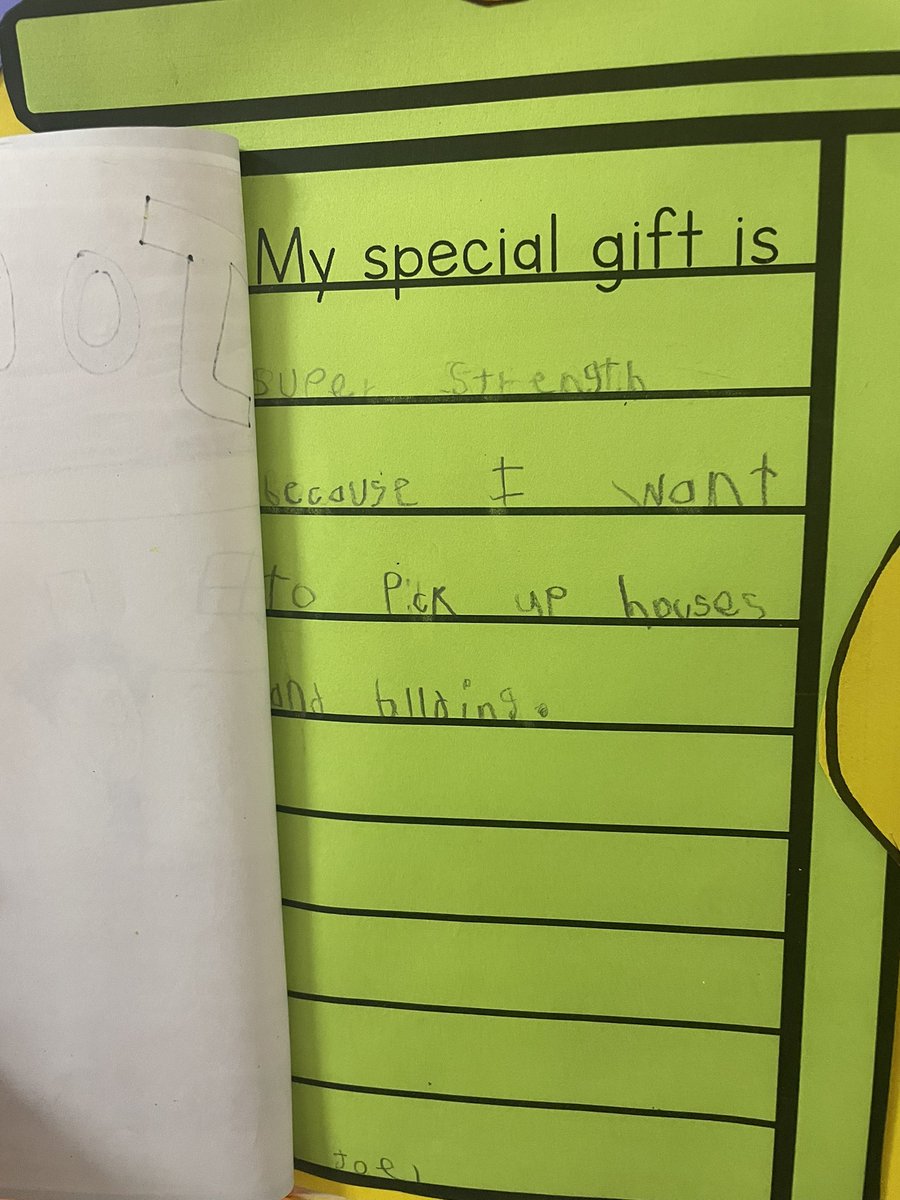 My special gift is
super strength
because I want
to Pick up houses
and blldings.
Joel